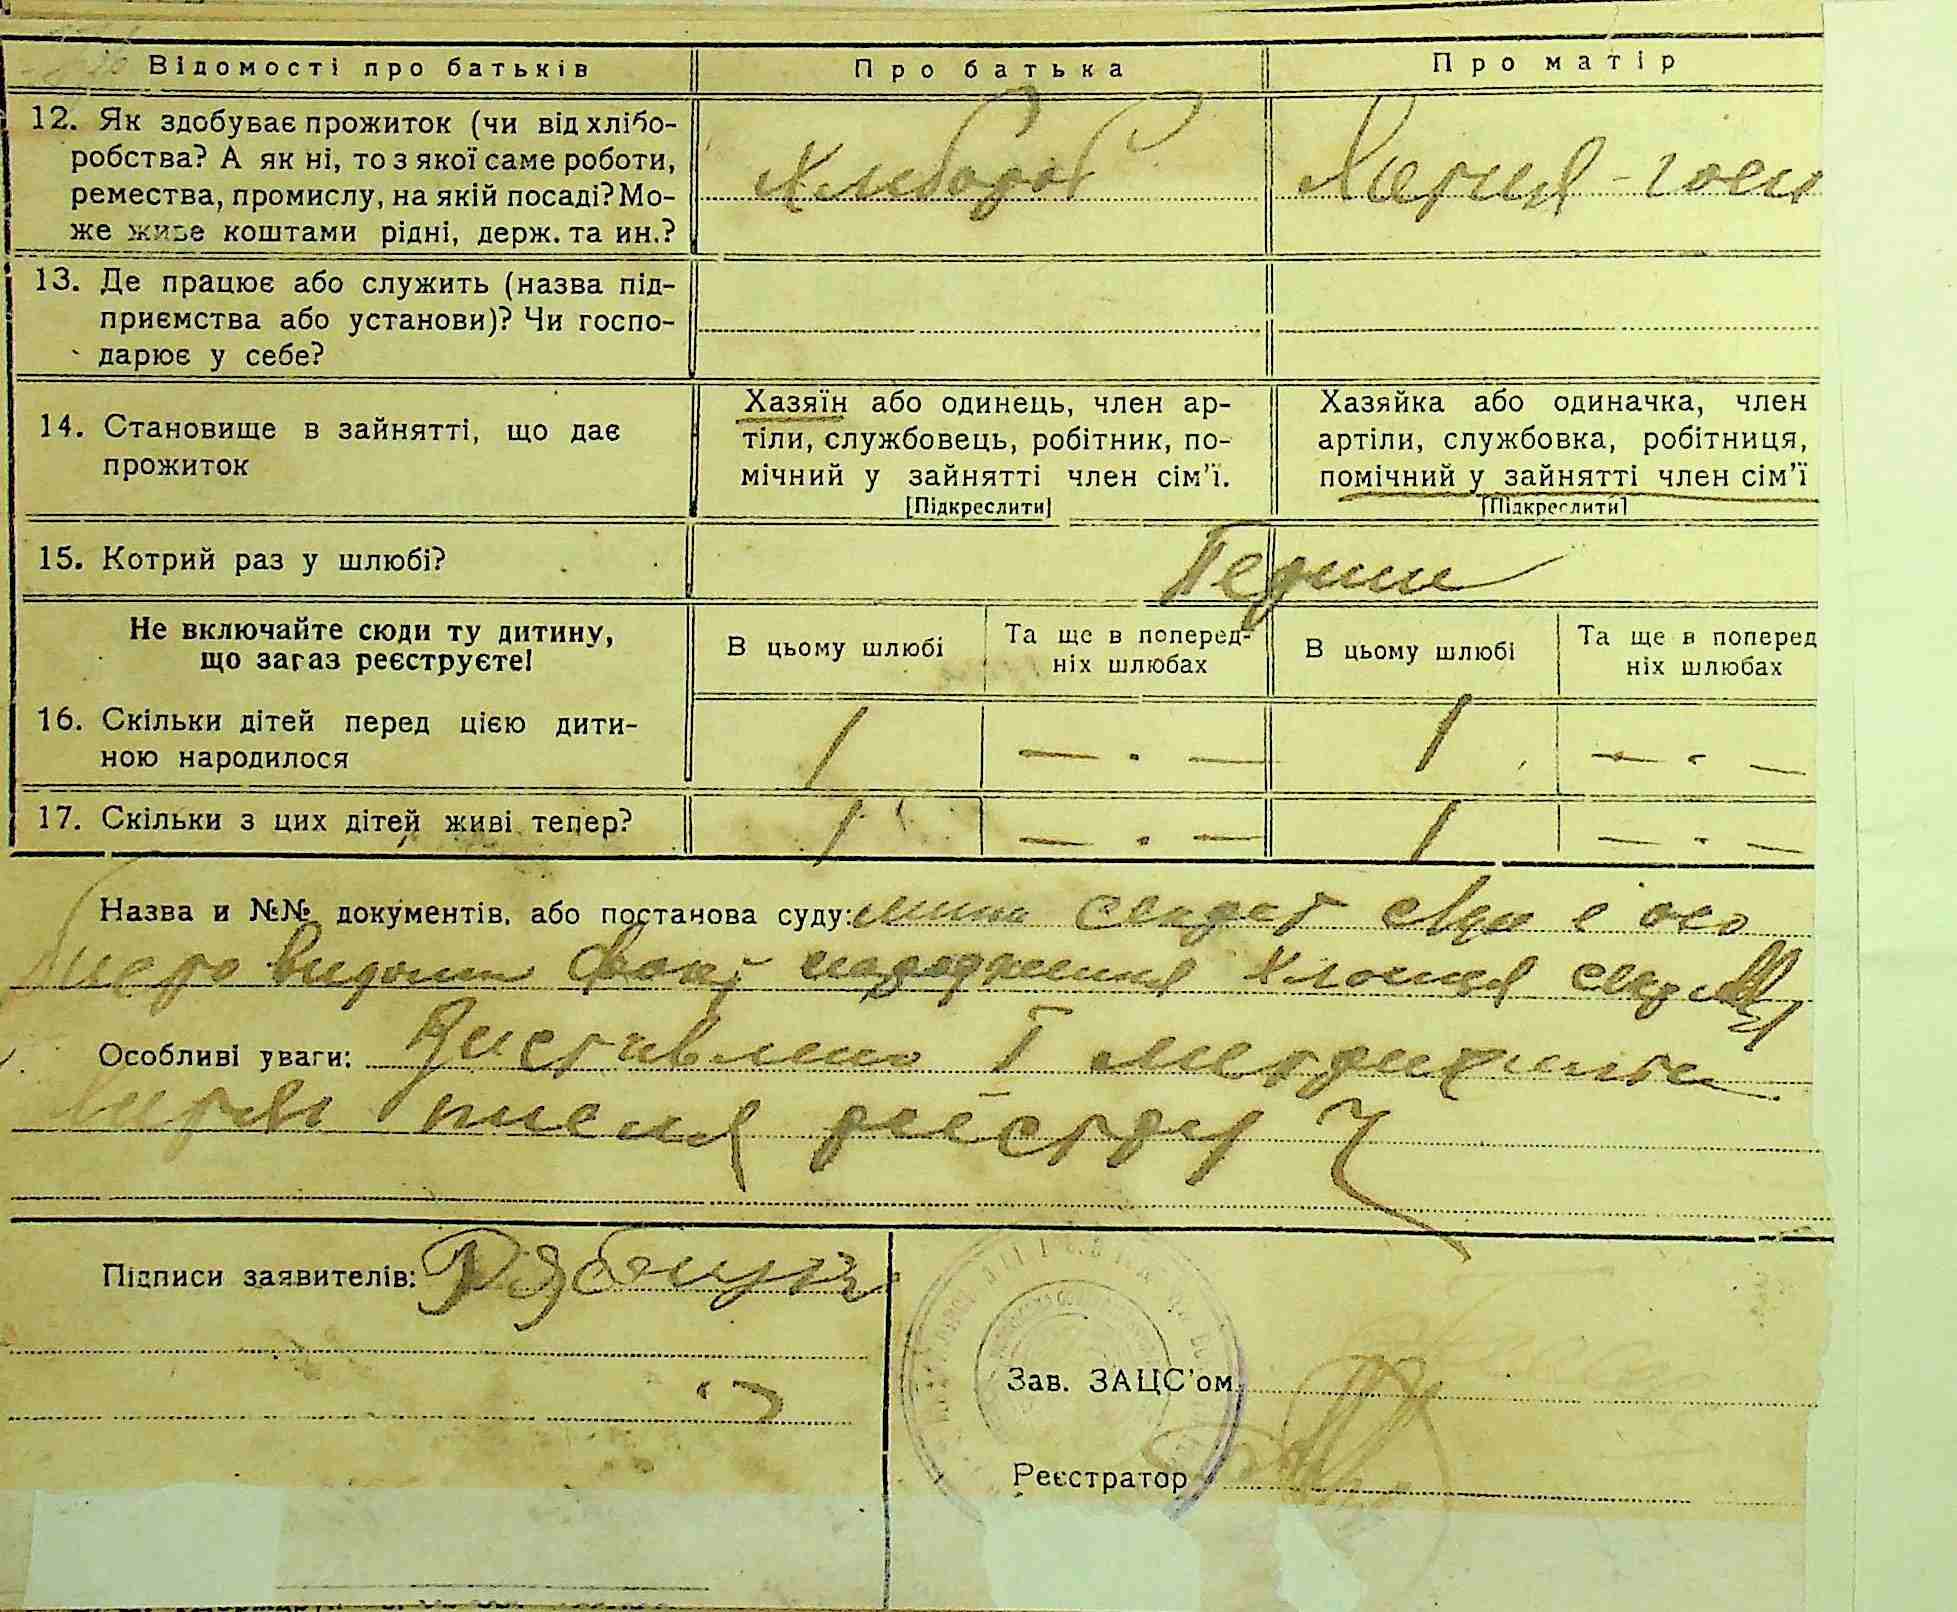 Відомості про батьків Про батька Про матір
12. Як здобуває прожиток (чи від хлібо-
робства? А як ні, то з якої саме роботи,
ремества, промислу, на якій посаді? Мо-
же живе коштами рідні, держ. та ин.?
Хлибороб
13. Де працює або служить (назва під-
приємства або установи)? Чи госпо-
дарює у себе?
14. Становище в зайнятті, що дає
прожиток
Хазяїн або одинець, член ар-
тіли, службовець, робітник, по-
мічний у зайнятті член сім'ї.
[Підкреслити]
Хазяйка або одиначка, член
артіли, службовка, робітниця,
помічний у зайнятті член сім'ї
[Підкреслити]
15. Котрий раз у шлюбі?
Не включайте сюди ту дитину,
що зараз реєструєте!
В цьому шлюбі
Та ще в поперед-
ніх шлюбах
В цьому шлюбі
Та ще в поперед
ніх шлюбах
16. Скільки дітей перед цією дити-
ною народилося
1 — . — 1 — . —
17. Скільки з цих дітей живі тепер?
1 — . — 1 — . —
Назва и №№ документів, або постанова суду: що є осо
видом факт народження хлопця
Особливі уваги: Виставлено
витяг писля реєстру
Підписи заявителів:
Зав. ЗАЦС'ом
Реєстратор